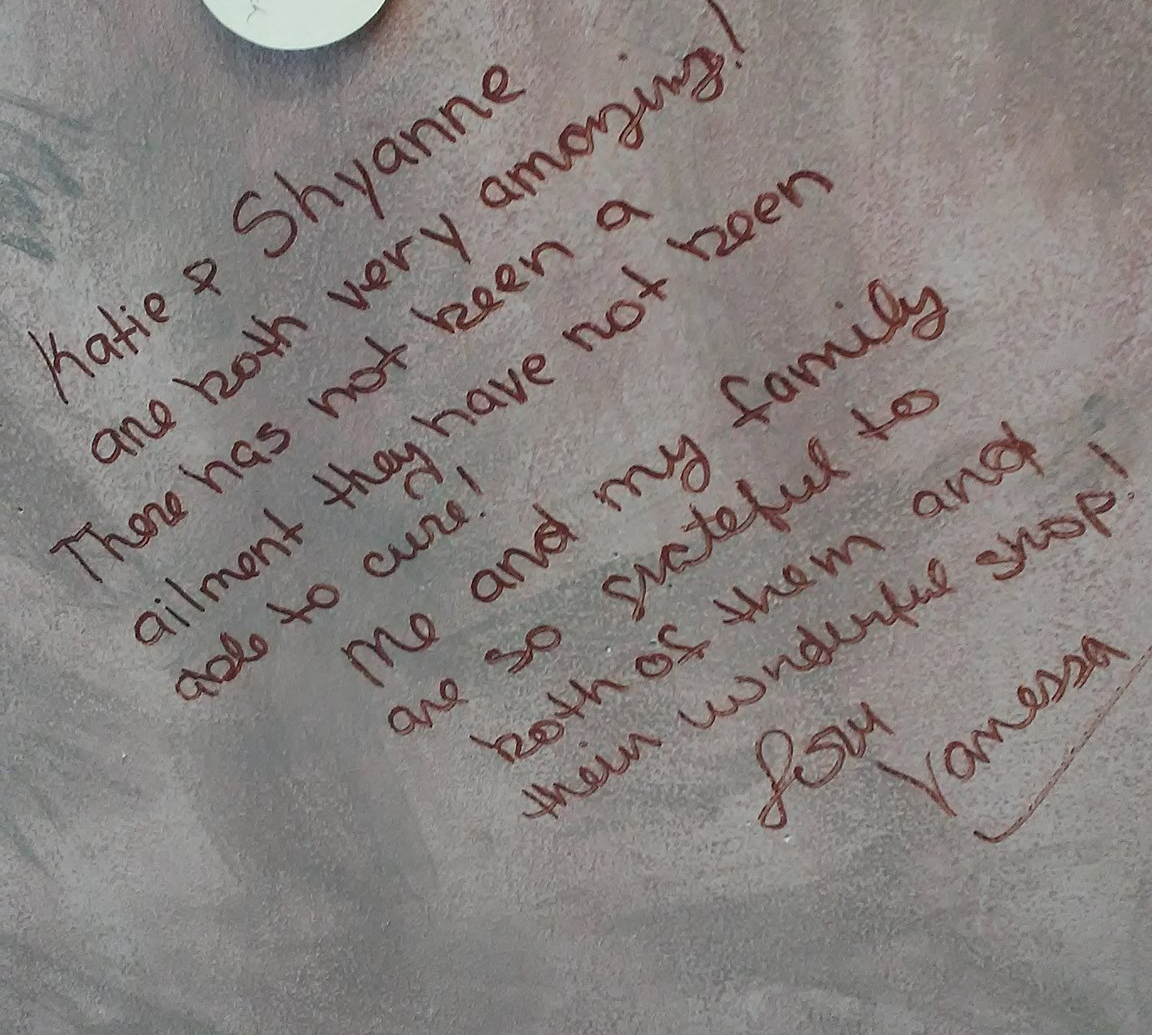 Katie & Shyanne
are both very amazing!
There has not been a
ailment they have not been
able to cure!
Me and my family
are so grateful to
both of them and
their wonderful shop!
Vanessa